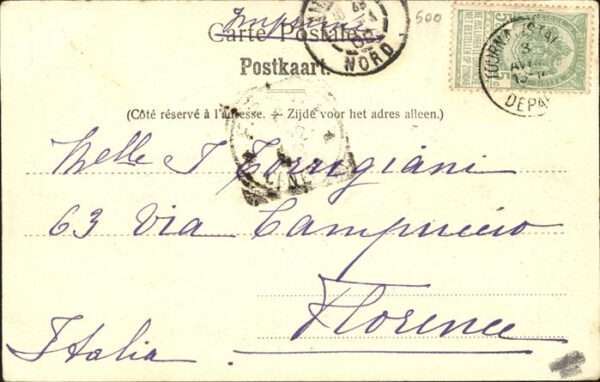 Imprimé
500
Carte Postale
Postkaart.
NORD
TOURNAI (STA)
3
DEPA
(Côté réservé à l'adresse. — Zijde voor het adres alleen.)
Melle T Torrigiani
63 Via Campuccio
Florence
Italia